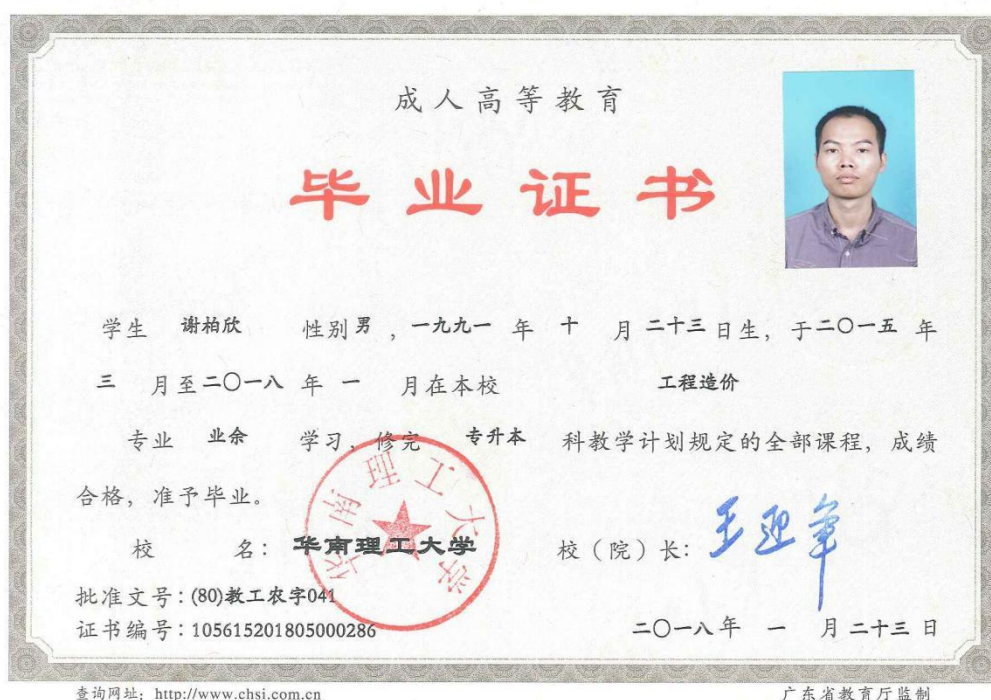 成人高等教育
毕业证书
学生 谢柏欣 性别 男 ，一九九一 年 十 月 二十三 日生，于 二〇一五 年
三 月至 二〇一八 年 一 月在本校 工程造价
专业 业余 学习，修完 专升本 科教学计划规定的全部课程，成绩
合格，准予毕业。
华南理工大学
校 名：华南理工大学 校（院）长：王迎军
批准文号：(80)教工农字041
证书编号：105615201805000286 二〇一八 年 一 月 二十三 日
查询网址：http://www.chsi.com.cn 广东省教育厅监制